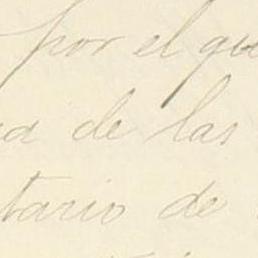 por el que
de las
tario de